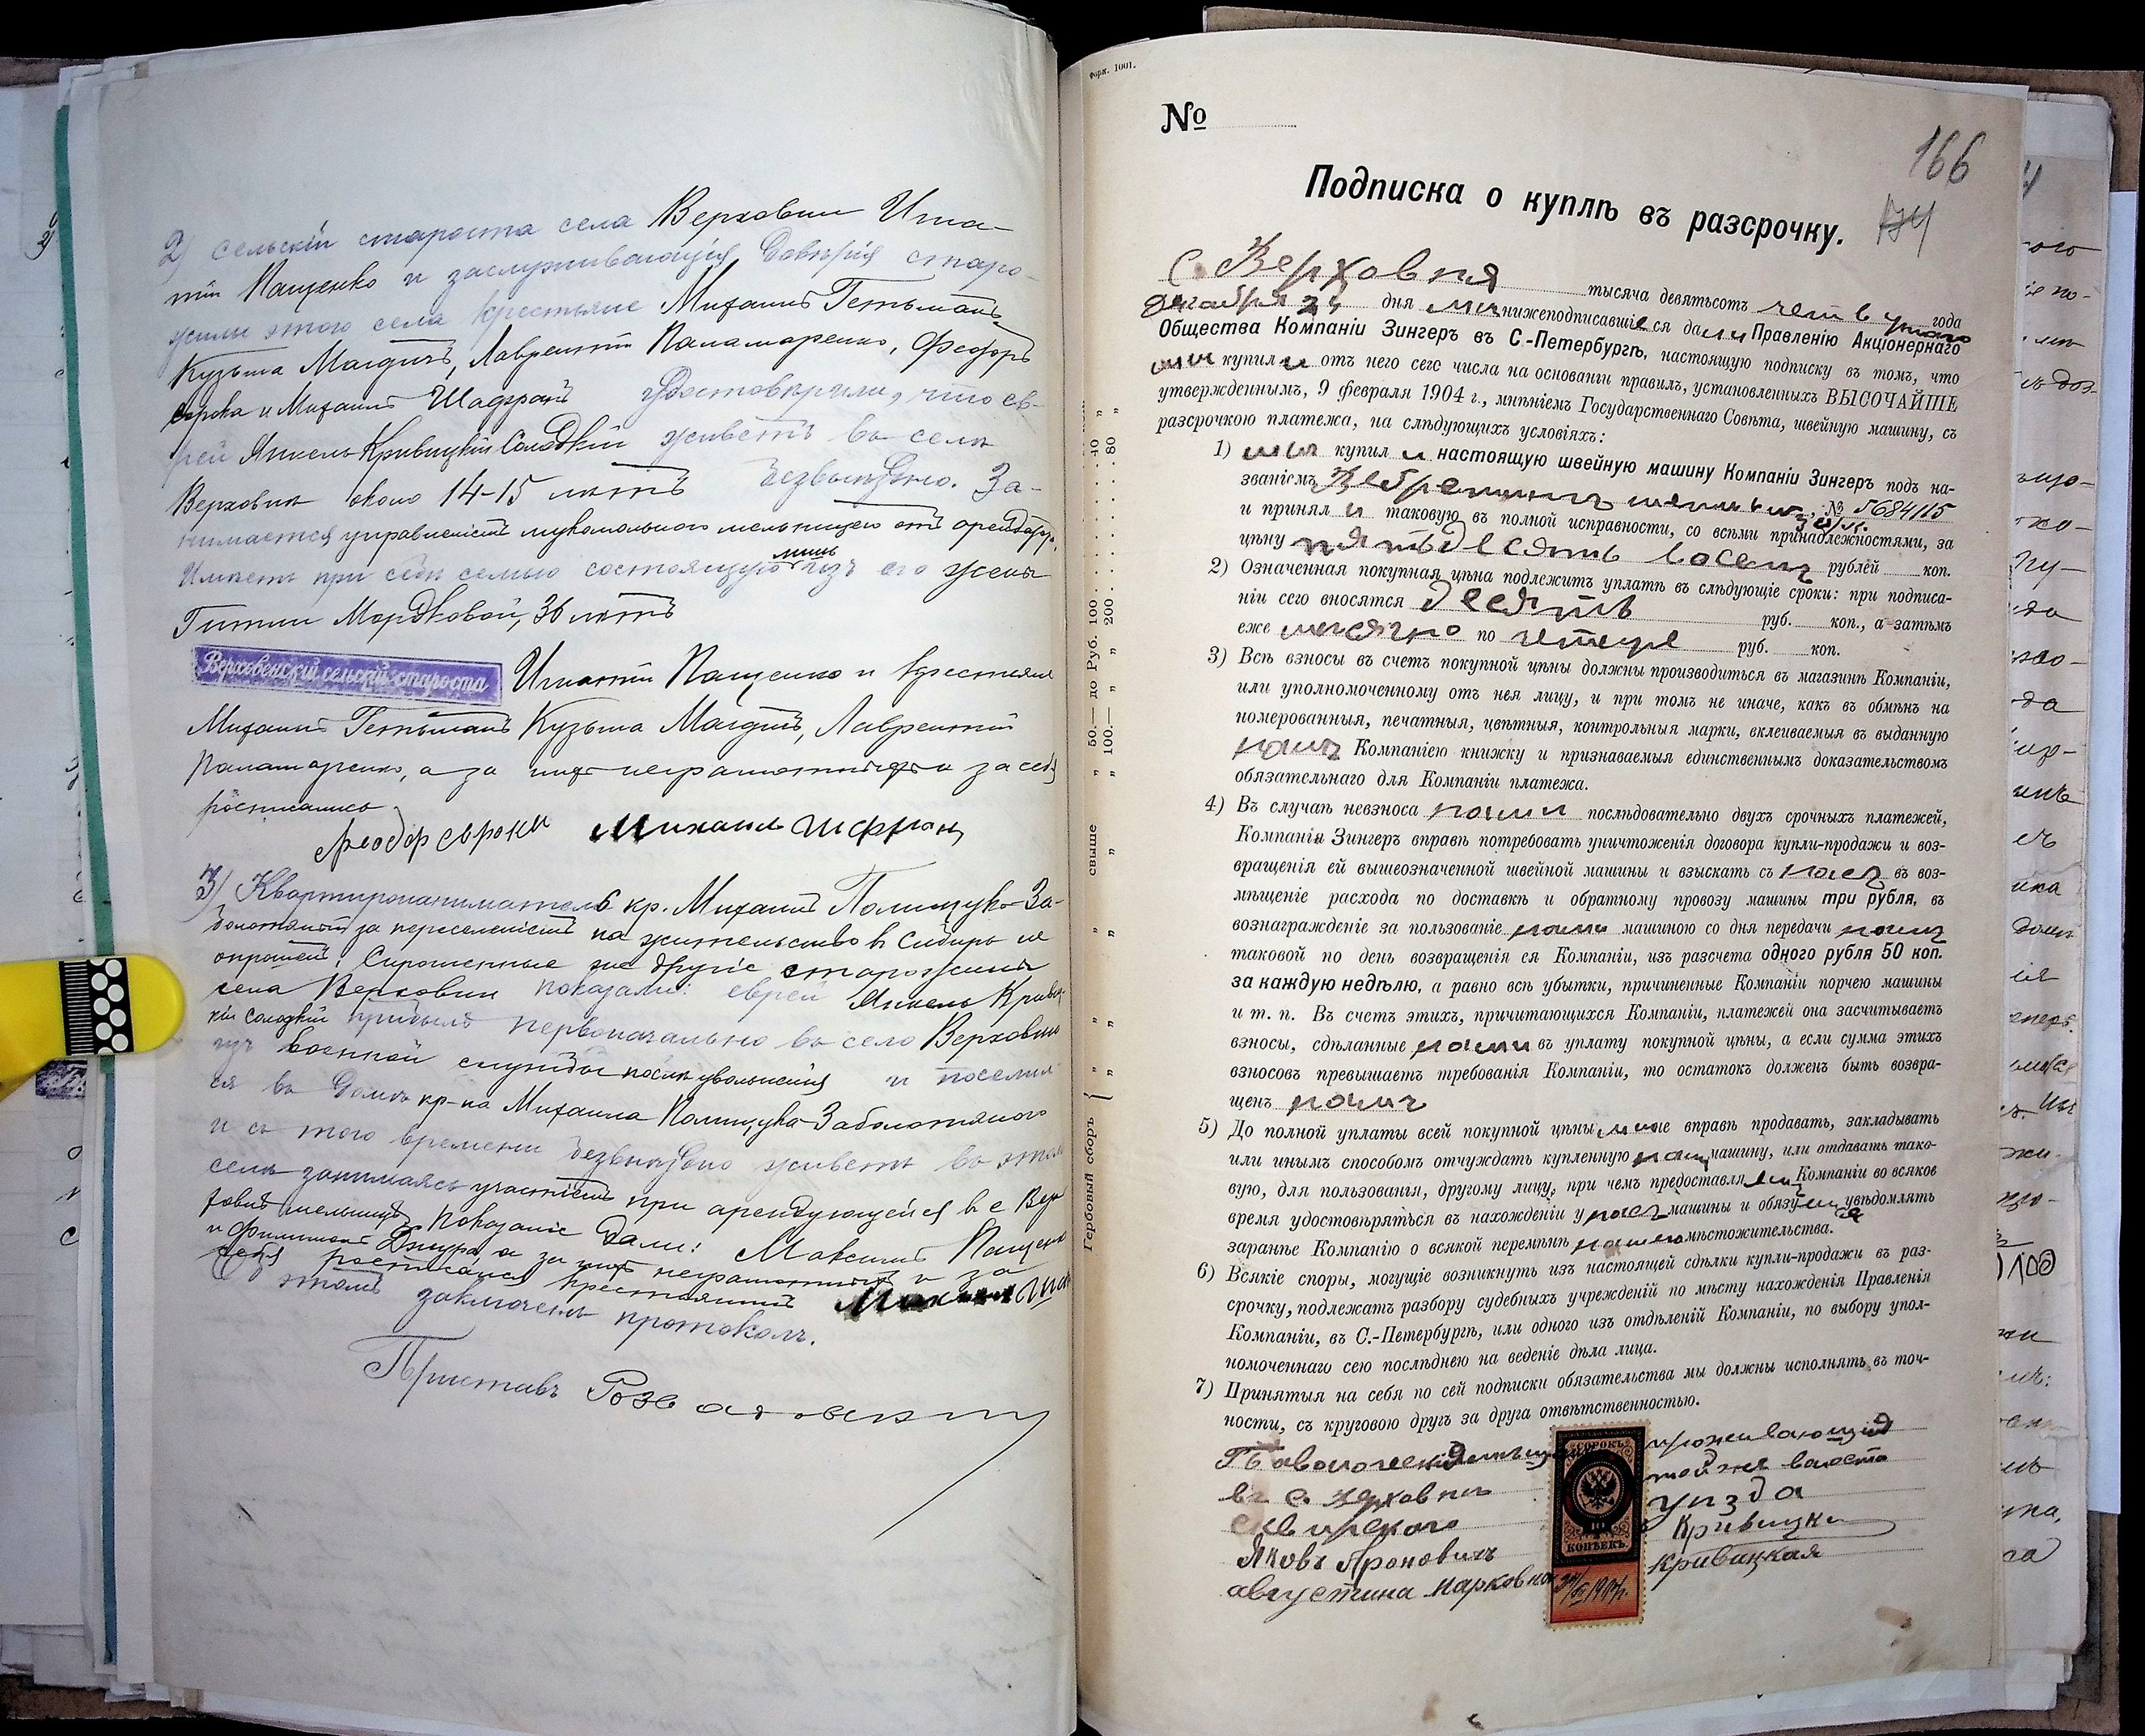 2) сельскій староста села Верховни Игна-
тій Пащенко и заслуживающія довѣрія старо-
жилы этого села крестьяне Михаилъ Гетьманъ,
Кузьма Магдичъ, Лаврентій Паламаренко, Феодоръ
Сорока и Михаилъ Шафранъ удостовѣрили, что ев-
рей Янкель Кривицкій Солодкій живетъ въ селѣ
Верховнѣ около 14-15 лѣтъ безвыѣздно. За-
нимается управленіемъ мукомольного мельницею отъ арендатора.
Имѣетъ при себѣ семью состоящую лишь изъ его жены
Гитли Мордковой, 36 лѣтъ
Верховенскій сельскій староста Игнатій Пащенко и крестьяне
Михаилъ Гетьманъ Кузьма Магдичъ, Лаврентій
Паламаренко, а за нихъ неграмотныхъ и за себя
росписались
Феодор Сорока Михаилъ Шафран
3) Квартиронаниматель кр. Михаилъ Полищукъ-За-
болотный за переселеніемъ на жительство въ Сибирь не
опрошенъ. Спрошенные же другіе старожилы
села Верховни показали: еврей Янкель Кривиц-
кій Солодкій прибылъ первоначально въ село Верховню
изъ военной службы послѣ увольненія и поселил-
ся въ домѣ кр-на Михаила Полищука-Заболотного
и съ того времени безвыѣздно живетъ въ этомъ
селѣ занимаясь участіемъ при арендующейся въ с Вер-
ховнѣ мельницѣ Показаніе дали: Максимъ Пащенко
и Филимонъ Джура, а за нихъ неграмотныхъ и за
себя росписался крестьянинъ
О этомъ заключенъ протоколъ.
Приставъ
Форм. 1001.
№
166
Подписка о куплѣ въ разсрочку.
С. Верховня тысяча девятьсотъ четвертаго года
декабря 24 дня мы нижеподписавшіеся дали Правленію Акціонернаго
Общества Компаніи Зингеръ въ С.-Петербургѣ, настоящую подписку въ томъ, что
мы купили отъ него сего числа на основаніи правилъ, установленныхъ ВЫСОЧАЙШЕ
утвержденнымъ, 9 февраля 1904 г., мнѣніемъ Государственнаго Совѣта, швейную машину, съ
разсрочкою платежа, на слѣдующихъ условіяхъ:
1) мы купили настоящую швейную машину Компаніи Зингеръ подъ на-
званіемъ № 5684115
и приняли таковую въ полной исправности, со всѣми принадлежностями, за
цѣну пятьдесять восемь рублей коп.
2) Означенная покупная цѣна подлежитъ уплатѣ въ слѣдующіе сроки: при подписа-
ніи сего вносятся десять руб. коп., а затѣмъ
еже мѣсячно по четыре руб. коп.
3) Всѣ взносы въ счетъ покупной цѣны должны производиться въ магазинѣ Компаніи,
или уполномоченному отъ нея лицу, и при томъ не иначе, какъ въ обмѣнъ на
номерованныя, печатныя, цвѣтныя, контрольныя марки, вклеиваемыя въ выданную
намъ Компаніею книжку и признаваемыя единственнымъ доказательствомъ
обязательнаго для Компаніи платежа.
4) Въ случаѣ невзноса нами послѣдовательно двухъ срочныхъ платежей,
Компанія Зингеръ вправѣ потребовать уничтоженія договора купли-продажи и воз-
вращенія ей вышеозначенной швейной машины и взыскать съ насъ въ воз-
мѣщеніе расхода по доставкѣ и обратному провозу машины три рубля, въ
вознагражденіе за пользованіе нами машиною со дня передачи намъ
таковой по день возвращенія ея Компаніи, изъ разсчета одного рубля 50 коп.
за каждую недѣлю, а равно всѣ убытки, причиненные Компаніи порчею машины
и т. п. Въ счетъ этихъ, причитающихся Компаніи, платежей она засчитываетъ
взносы, сдѣланные нами въ уплату покупной цѣны, а если сумма этихъ
взносовъ превышаетъ требованія Компаніи, то остатокъ долженъ быть возвра-
щенъ намъ
5) До полной уплаты всей покупной цѣны мы не вправѣ продавать, закладывать
или инымъ способомъ отчуждать купленную нами машину, или отдавать тако-
вую, для пользованія, другому лицу, при чемъ предоставляемъ Компаніи во всякое
время удостовѣряться въ нахожденіи у насъ машины и обязуемся увѣдомлять
заранѣе Компанію о всякой перемѣнѣ нашего мѣстожительства.
6) Всякіе споры, могущіе возникнуть изъ настоящей сдѣлки купли-продажи въ раз-
срочку, подлежатъ разбору судебныхъ учрежденій по мѣсту нахожденія Правленія
Компаніи, въ С.-Петербургѣ, или одного изъ отдѣленій Компаніи, по выбору упол-
номоченнаго сею послѣднею на веденіе дѣла лица.
7) Принятыя на себя по сей подписки обязательства мы должны исполнять въ точ-
ности, съ круговою другъ за друга отвѣтственностью.
Паволочскій мѣщан проживающій
въ с. Верховнѣ той же волости
сквирского уѣзда
Яковъ Ароновичъ Кривицки
августина Марковна Кривицкая
СОРОКЪ
40
КОПѢЕКЪ.
24/XII 1904 г.
Гербовый сборъ свыше 50.— до Руб. 100 . . . . . . . 40 "
" 100.— " " 200 . . . . . . . 80 "